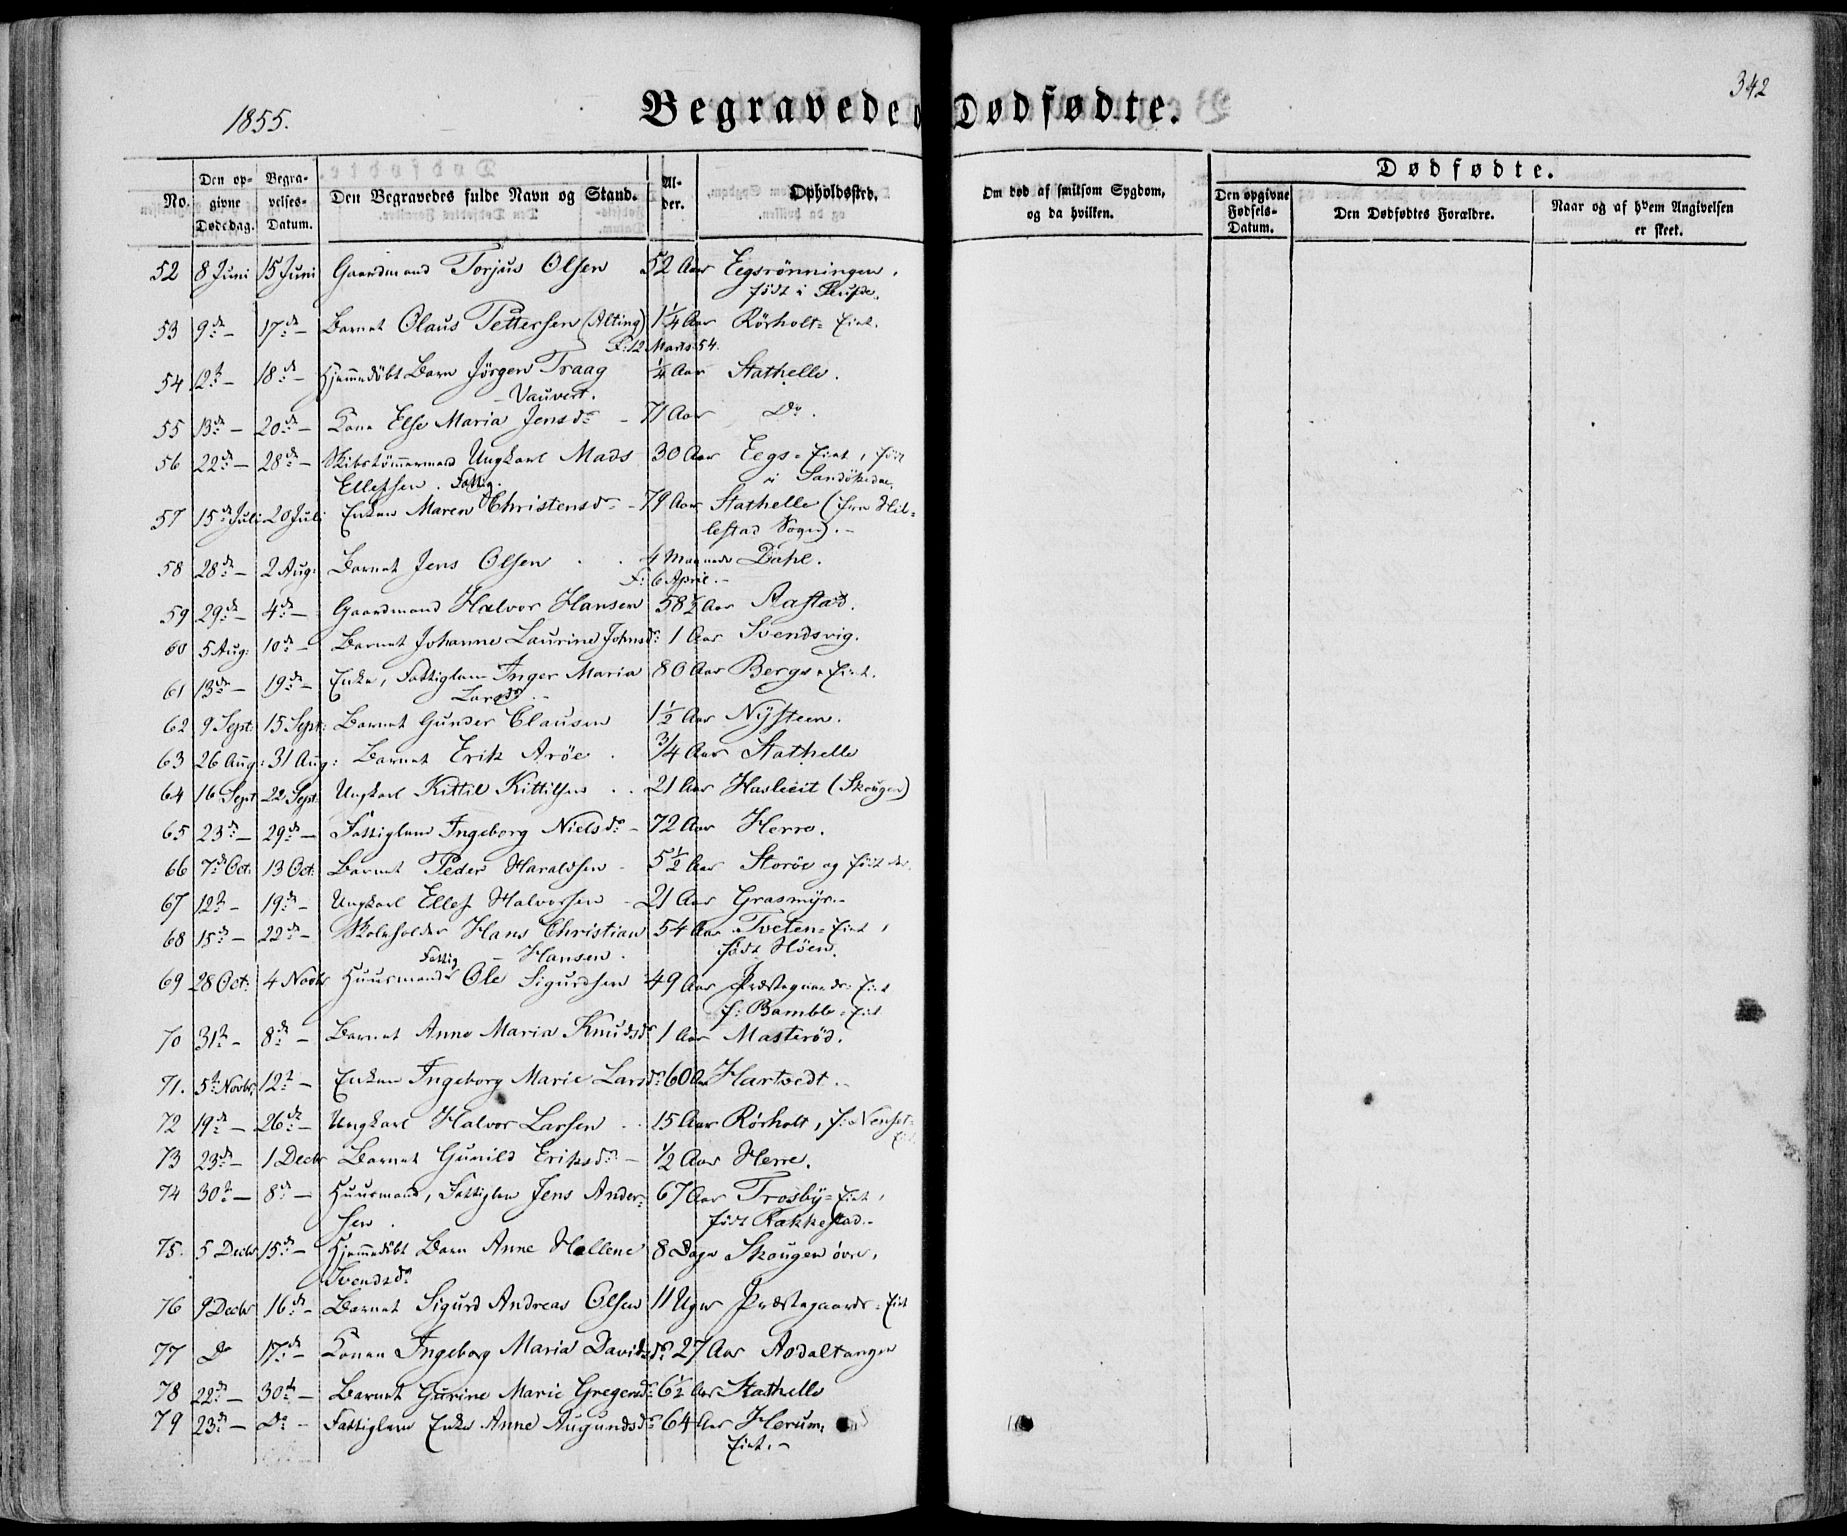 1855.
Begravede o Dødfødte.
342
No.
Den op-
givne
Dødedag.
Begra-
velses-
Datum.
Den Begravedes fulde Navn og Stand.
Al-
der.
Opholdssted.
Om død af smitsom Sygdom,
og da hvilken.
Dødfødte.
Den opgivne
Fødsels-
Datum.
Den Dødfødtes Forældre.
Naar og af hvem Angivelsen
er skeet.
52 8 Juni 15 Juni Gaardmand Torjus Olsen 52 Aar Eegsrönningen,
født i
53 9de – 17de – Barnet Olaus Pettersen (Alting) 1 1/4 Aar Rörholt= Eiet.
F: 12 Marts 54.
54 12te – 18de – Hjemmedöbt Barn Jörgen Traag 1/4 Aar Stathelle.
– Vauvert.
55 13de – 20de – Kone Else Maria Jensdr – 71 Aar Do.
56 22de – 28de – Skibstömmermand Ungkarl Mads 30 Aar Eegs= Eiet, født
Ellefsen. Fattig. i Sandökedal.
57 15de Juli 20 Juli Enken Maren Christensdr – 79 Aar Stathelle (fra Hil=
lestad Sogn). –
58 28de – 2 Aug: Barnet Jens Olsen . . 4 Maaneder Dahl.
F: 6 April. –
59 29de – 4de – Gaardmand Halvor Hansen 58 1/2 Aar Aastad.
60 5 Aug: 10de – Barnet Johanne Laurine Johnsdr 1 Aar Svendsvig.
61 13de – 19de – Enke, Fattiglem Inger Maria 80 Aar Bergs= Eiet.
Larsdr. –
62 9 Sept: 15 Sept: Barnet Gunder Clausen 1 1/2 Aar Nysteen.
63 26 Aug: 31 Aug: Barnet Erik Aröe . 3/4 Aar Stathelle
64 16 Sept 22 Sept: Ungkarl Kittil Kittilsen . . 21 Aar Hasleeit (Skougen)
65 23de – 29de – Fattiglem Ingeborg Nielsdr – 72 Aar Herre.
66 7de Oct: 13 Oct: Barnet Peder Haraldsen – 5 1/2 Aar Storöe og født der.
67 12te – 19de – Ungkarl Ellef Halvorsen – 21 Aar Grasmyr. –
68 15de – 22de – Skoleholder Hans Christian 54 Aar Tveten= Eiet,
– Hansen. født Höen.
69 28 Oct: 4 Novbr Fattig Huusmand Ole Sigurdsen 49 Aar Præstegaards= Eiet
f: Bamble= Eiet
70 31te – 8de – Barnet Anne Maria Knudsdr 1 Aar Masteröd.
71. 5te Novbr: 12te – Enken Ingeborg Marie Larsdr 60 Aar Hartvedt. –
72 19de – 26de – Ungkarl Halvor Larsen . . 15 Aar Rörholt, f: Nenset=
Eiet.
73 23de – 1 Decbr Barnet Gunild Eriksdr – 1/2 Aar Herre.
74 30te – 8de – Huusmand, Fattiglem Jens Ander= 67 Aar Trosby= Eiet,
sen . født Rakkestad. –
75. 5 Decbr 15de – Hjemmedöbt Barn Anne Hellene 8 Dage Skougen övre,
Svendsdr
76 9 Decbr 16de – Barnet Sigurd Andreas Olsen 11 Uger Præstegaards= Eiet
77 Do 17de – Konen Ingeborg Maria Davidsdr 27 Aar Aadaltangen
78 22de – 30te – Barnet Gurine Marie Gregersdr 6 1/2 Aar Stathelle
79 23de – Do – Fattiglem Enke Anne Augundsdr 64 Aar Herum=
Eiet. –